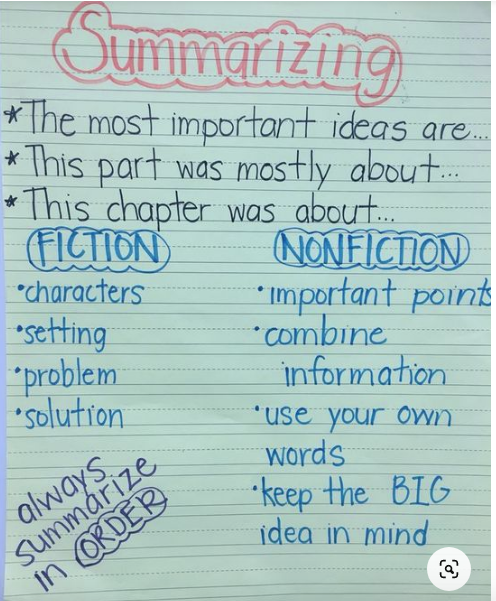 Summarizing
*The most important ideas are...
*This part was mostly about...
*This chapter was about...
FICTION
•characters
•setting
•problem
•solution
always
summarize
in ORDER
NONFICTION
•important points
•combine
information
•use your own
words
•keep the BIG
idea in mind